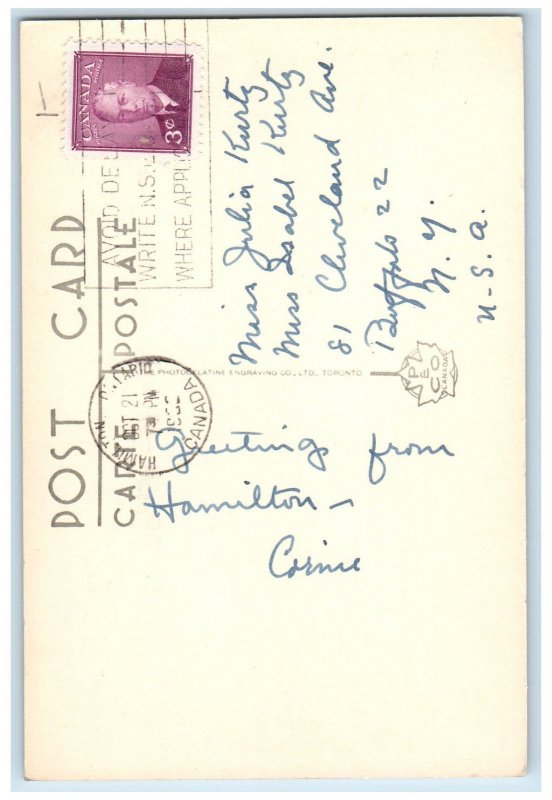 CANADA
POSTES POSTAGE
3¢
AVOID DE
WRITE N.S.
WHERE APPL
POST CARD
CARTE POSTALE
HAMILTON ONTARIO
OCT 21
PM
CANADA
Miss Julia Kurtz
Miss Isabel Kurtz
81 Cleveland Ave.
Buffalo 22
N. Y.
U-S. A.
PHOTOGELATINE ENGRAVING CO., LTD., TORONTO
PECO
CANADA
Greetings from
Hamilton –
Corine